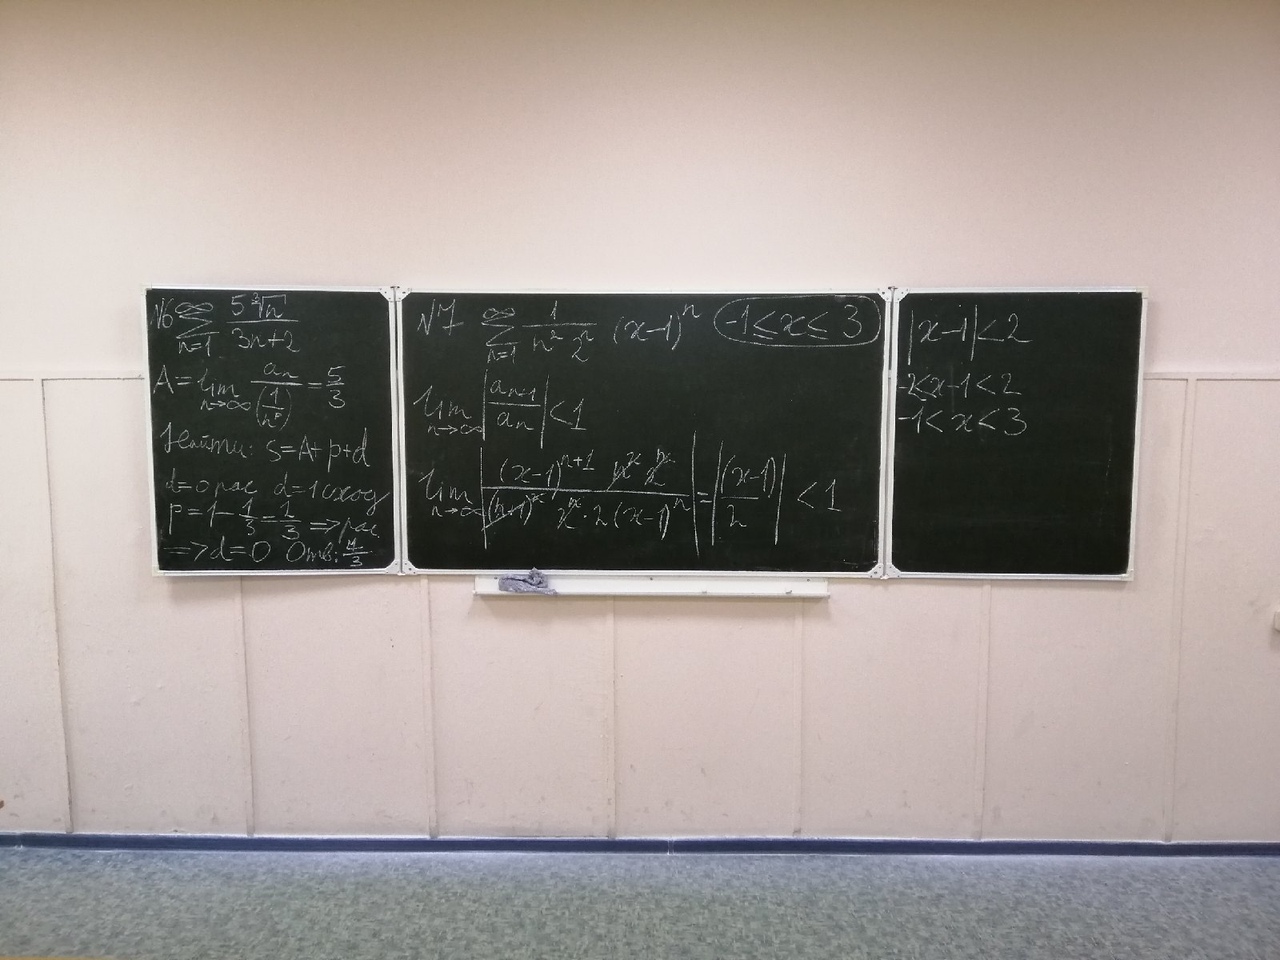 №6 ∞ Σ n=1 5∛n / 3n+2
A = lim n→∞ aₙ / (1/nᵖ) = 5/3
Найти: S=A+p+d
d=0 рас d=1 сход
P=1-1/3=2/3 => рас
=> d=0 Отв: 7/3
№7 ∞ Σ n=1 1 / n² 2ⁿ (x-1)ⁿ -1≤x≤3
lim n→∞ |aₙ₊₁ / aₙ| < 1
lim n→∞ |(x-1)ⁿ⁺¹ n² 2ⁿ / (n+1)² 2ⁿ·2(x-1)ⁿ| = |(x-1) / 2| < 1
|x-1|<2
-2<x-1<2
-1<x<3